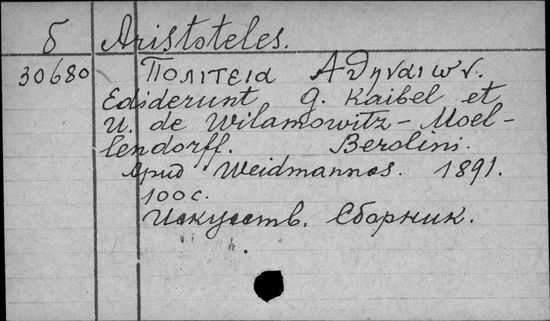 б Aristoteles.
30680 Πολιτεια Αθηναιων.
Ediderunt G. Kaibel et
U. de Wilamowitz-Moel-
lendorff. Berolini.
Apud Weidmannos. 1891.
100 с.
Искусств. Сборник.